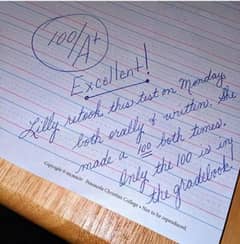 100/A+
Excellent!
Lilly retook this test on Monday
both orally & written. She
made a 100 both times.
Only the 100 is in
the gradebook!
Pensacola Christian College • Not to be reproduced.